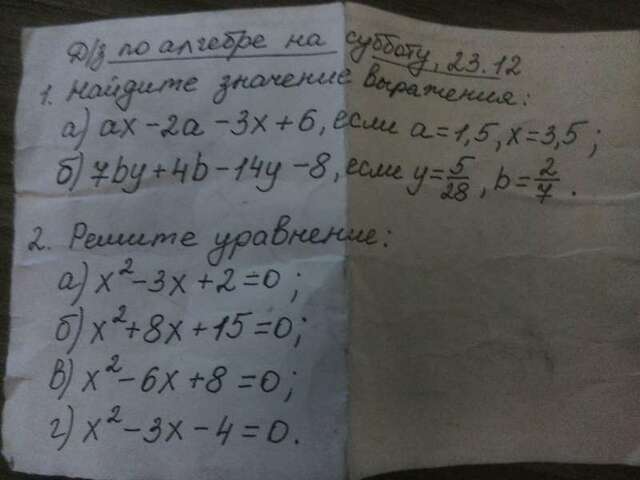 Д/з по алгебре на субботу, 23.12
1. Найдите значение выражения:
а) ax-2a-3x+6, если a=1,5, x=3,5;
б) 7by+4b-14y-8, если y=5/28, b=2/7.
2. Решите уравнение:
а) x²-3x+2=0;
б) x²+8x+15=0;
в) x²-6x+8=0;
г) x²-3x-4=0.